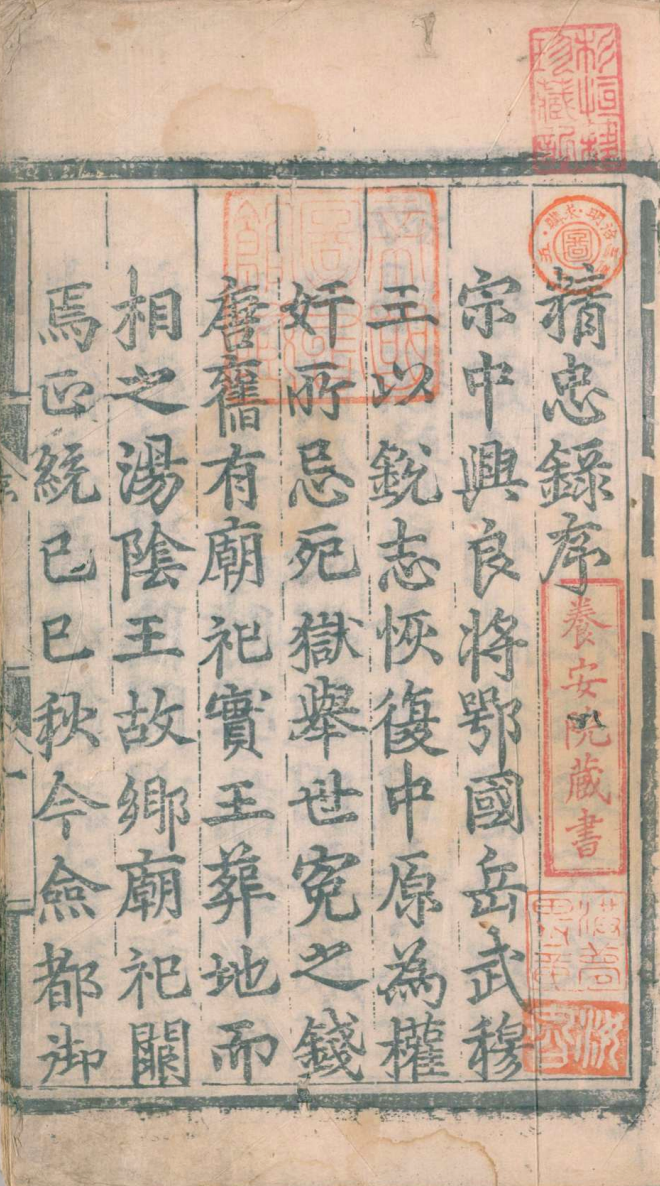 精忠錄序
宗中興良將鄂國岳武穆
王以銳志恢復中原為權
奸所忌死獄舉世寃之錢
唐舊有廟祀實王葬地而
相之湯陰王故鄉廟祀闕
焉正統己巳秋今僉都御
養安院藏書